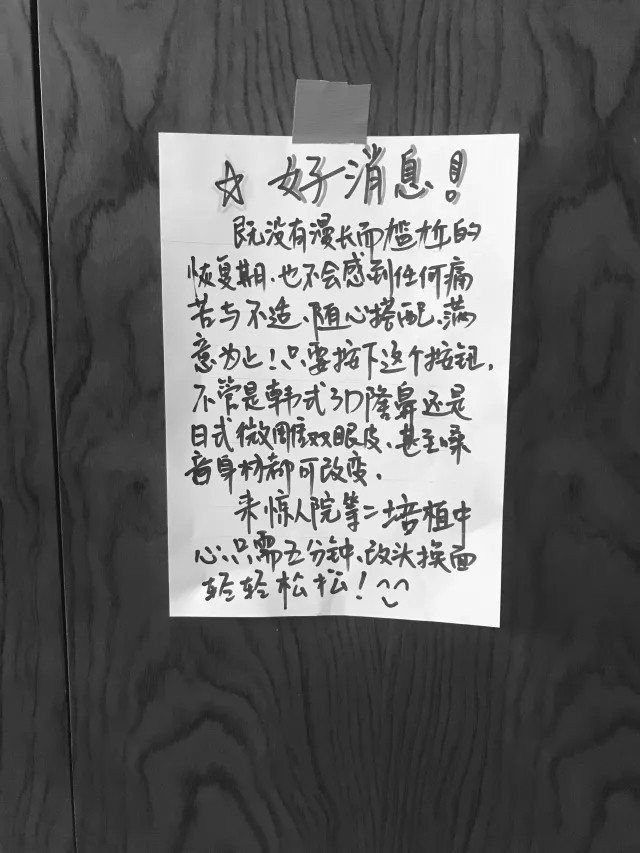 ☆ 好消息！
既没有漫长而尴尬的
恢复期、也不会感到任何痛
苦与不适、随心搭配、满
意为止！只要按下这个按钮，
不管是韩式3D隆鼻还是
日式微雕双眼皮、甚至嗓
音身材都可改变、
来惊人院第二培植中
心、只需五分钟、改头换面
轻轻松松！^^